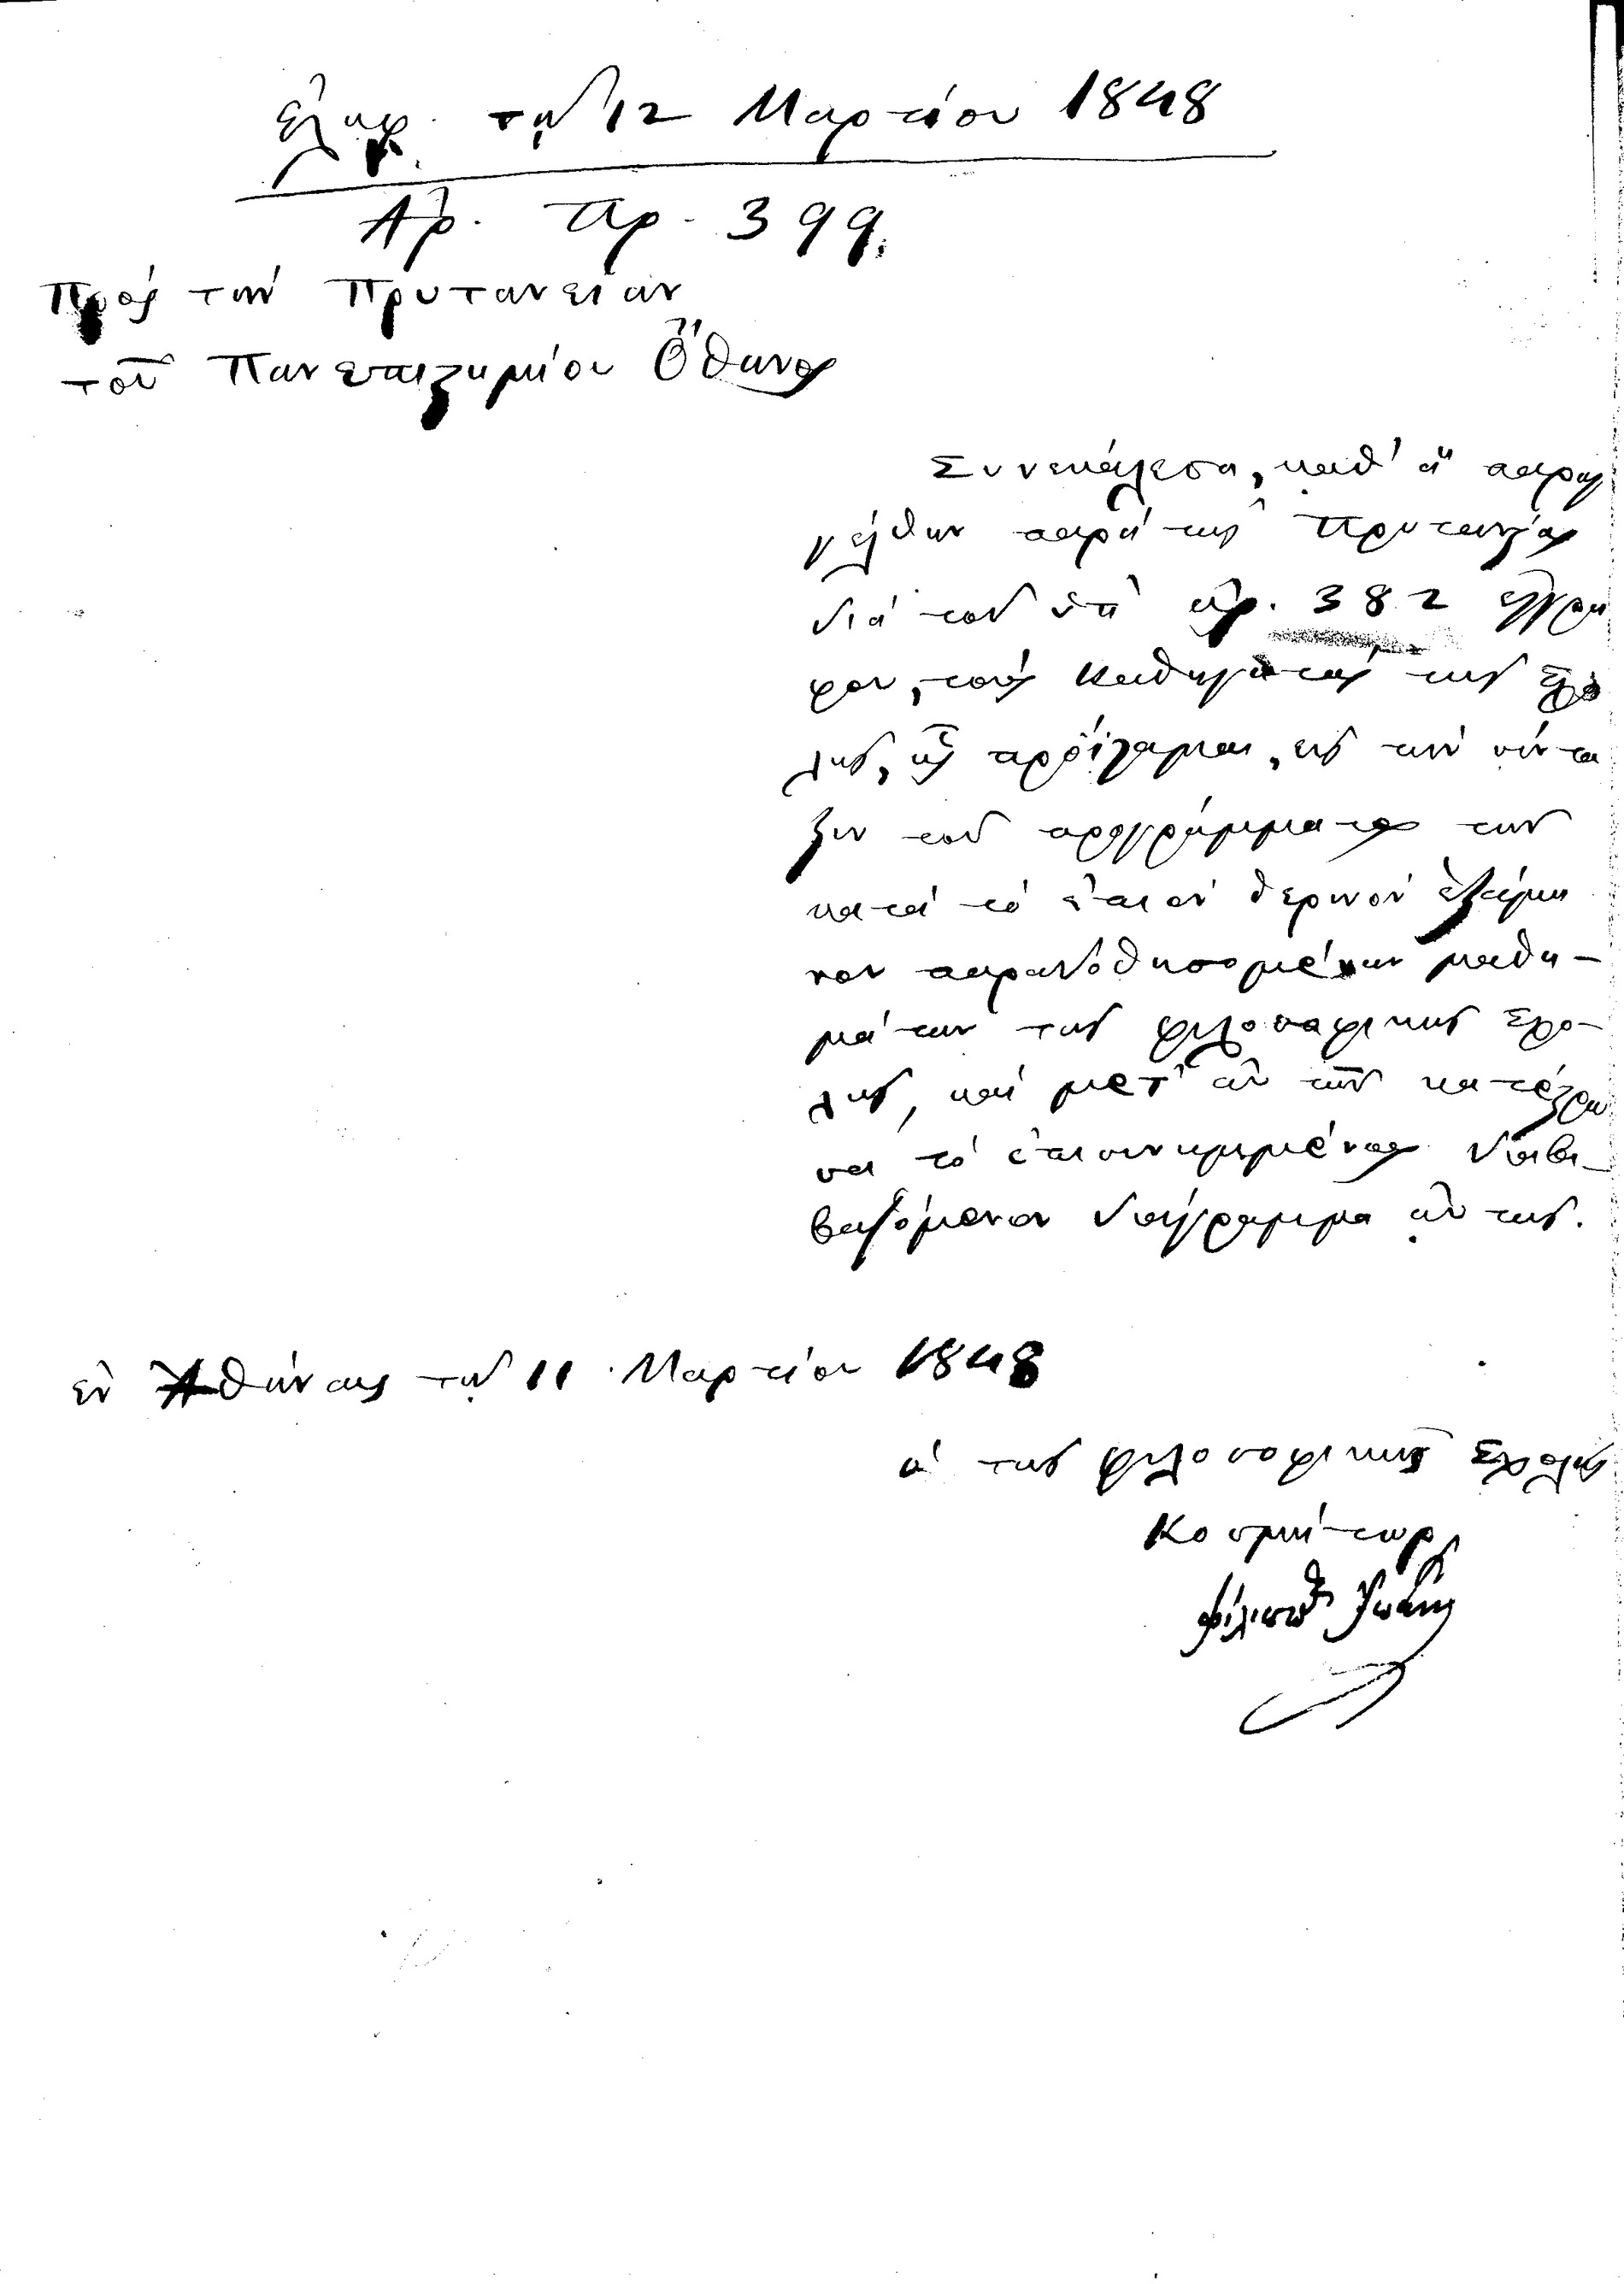 Ἐλήφ. τῇ 12 Μαρτίου 1848
Ἀρ. πρ. 399.
Πρὸς τὴν Πρυτανείαν
τοῦ Πανεπιστημίου Ὄθωνος
Συνεκάλεσα, καθ' ἃ παρηγ
γέλθην παρὰ τῆς Πρυτανείας
διὰ τοῦ ὑπ' ἀρ. 382 ἐγγρά
φου, τοὺς Καθηγητὰς τῆς Σχο
λῆς, ἧς προΐσταμαι, εἰς τὴν σύντα
ξιν τοῦ προγράμματος τῶν
κατὰ τὸ ἐπιὸν θερινὸν ἑξάμη
νον παραδοθησομένων μαθη-
μάτων τῆς φιλοσοφικῆς Σχο-
λῆς, καὶ μετ' αὐτῶν κατέστρω
σα τὸ ἐπισυνημμένως διαβι-
βαζόμενον διάγραμμα αὐτῆς.
ἐν Ἀθήναις τῇ 11 Μαρτίου 1848
ὁ τῆς φιλοσοφικῆς Σχολῆς
Κοσμήτωρ
Φίλιππος Ἰωάννου